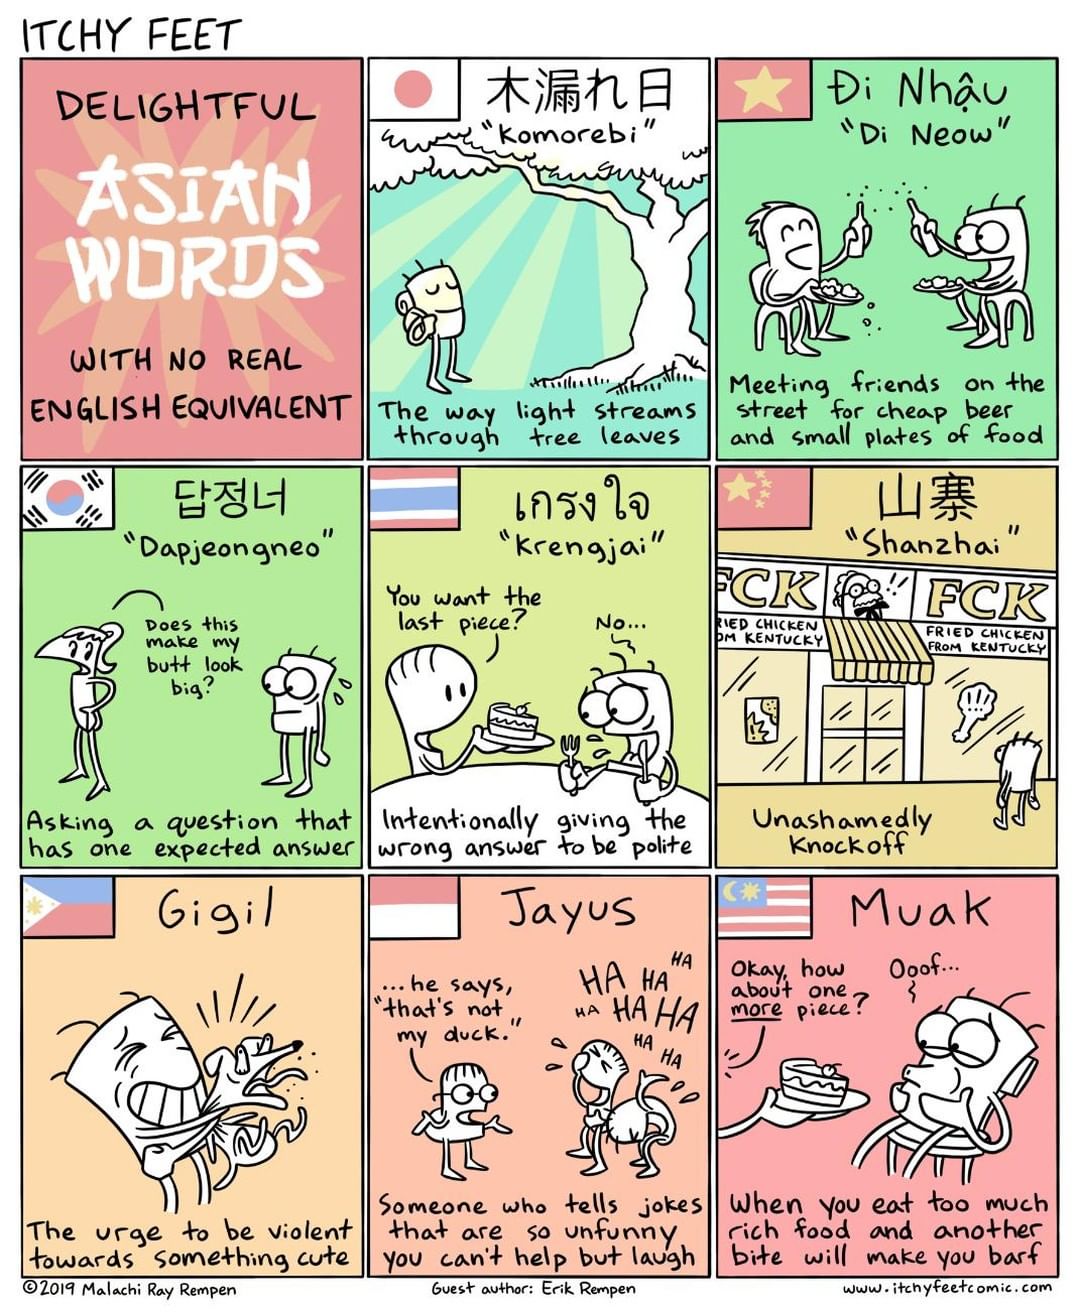 ITCHY FEET
DELIGHTFUL
ASIAN
WORDS
WITH NO REAL
ENGLISH EQUIVALENT
木漏れ日
"Komorebi"
The way light streams
through tree leaves
Đi Nhậu
"Di Neow"
Meeting friends on the
street for cheap beer
and small plates of food
답정너
"Dapjeongneo"
Does this
make my
butt look
big?
Asking a question that
has one expected answer
เกรงใจ
"Krengjai"
You want the
last piece?
No...
Intentionally giving the
wrong answer to be polite
山寨
"Shanzhai"
FCK
FCK
RIED CHICKEN
OM KENTUCKY
FRIED CHICKEN
FROM KENTUCKY
Unashamedly
Knockoff
Gigil
The urge to be violent
towards something cute
Jayus
...he says,
"that's not
my duck."
HA HA HA
HA HA HA
HA
HA
Someone who tells jokes
that are so unfunny
you can't help but laugh
Muak
Okay, how
about one
more piece?
Ooof...
When you eat too much
rich food and another
bite will make you barf
©2019 Malachi Ray Rempen
Guest author: Erik Rempen
www.itchyfeetcomic.com